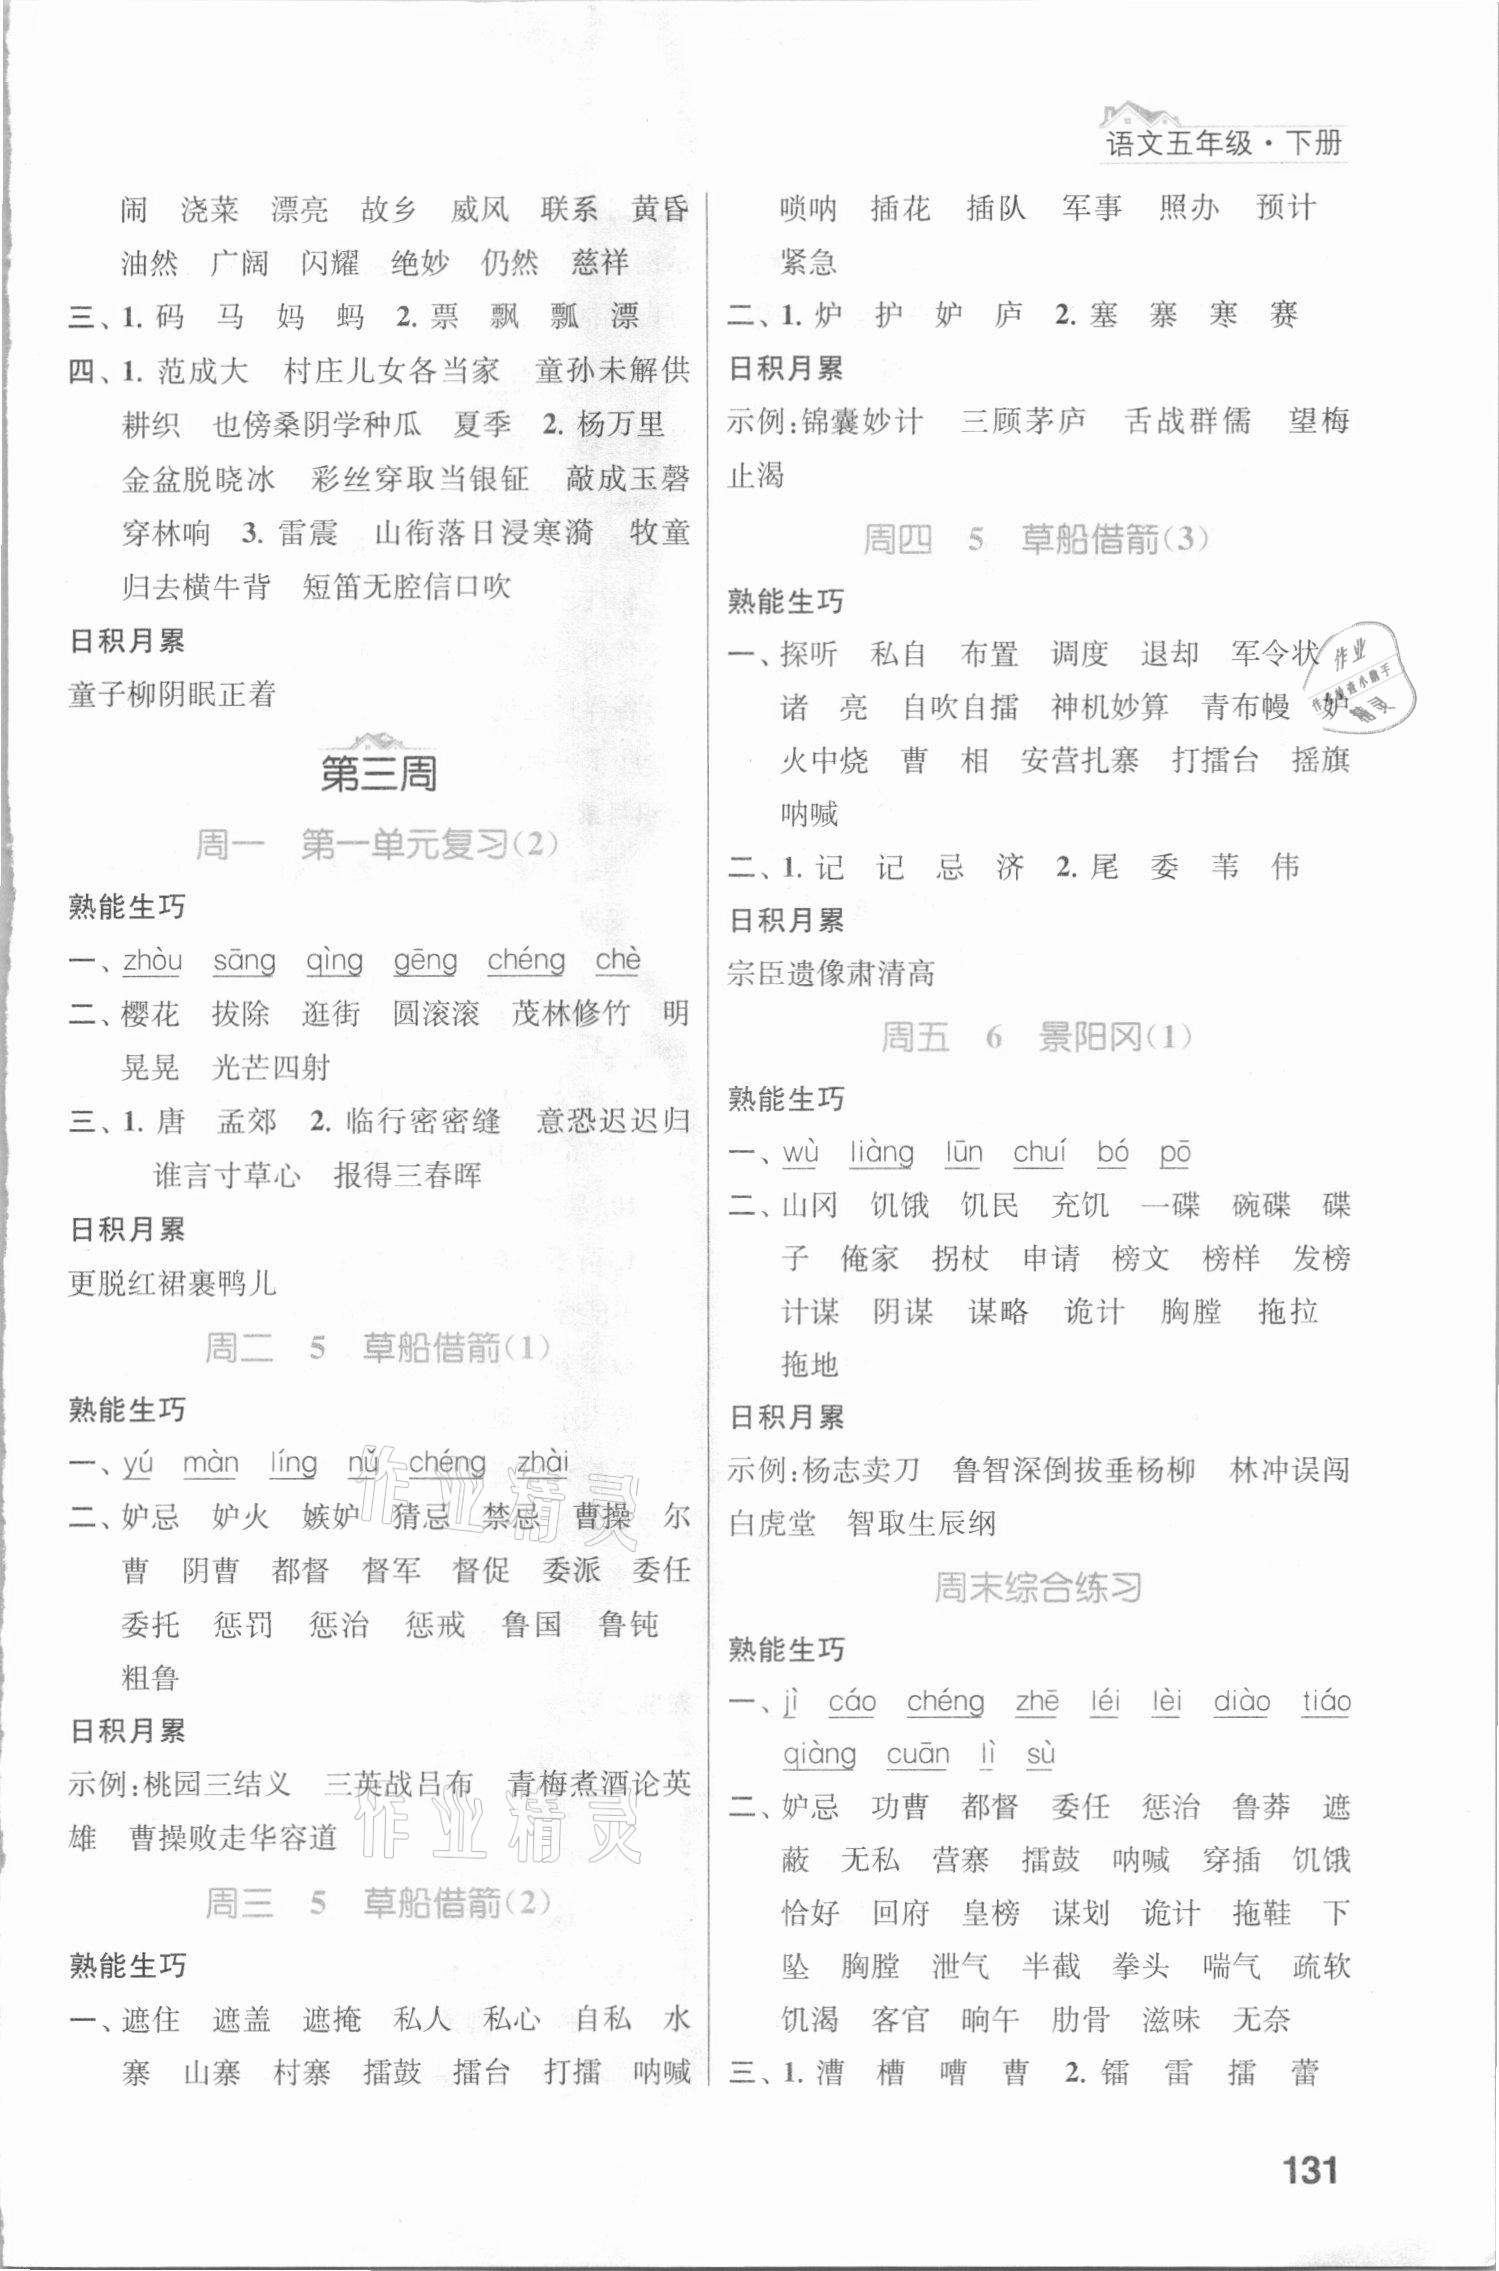 语文五年级·下册
闹 浇菜 漂亮 故乡 威风 联系 黄昏
油然 广阔 闪耀 绝妙 仍然 慈祥
三、1. 码 马 妈 蚂 2. 票 飘 瓢 漂
四、1. 范成大 村庄儿女各当家 童孙未解供
耕织 也傍桑阴学种瓜 夏季 2. 杨万里
金盆脱晓冰 彩丝穿取当银钲 敲成玉磬
穿林响 3. 雷震 山衔落日浸寒漪 牧童
归去横牛背 短笛无腔信口吹
日积月累
童子柳阴眠正着
第三周
周一 第一单元复习(2)
熟能生巧
一、zhòu sāng qìng gēng chéng chè
二、樱花 拔除 逛街 圆滚滚 茂林修竹 明
晃晃 光芒四射
三、1. 唐 孟郊 2. 临行密密缝 意恐迟迟归
谁言寸草心 报得三春晖
日积月累
更脱红裙裹鸭儿
周二 5 草船借箭(1)
熟能生巧
一、yú màn líng nǔ chéng zhài
二、妒忌 妒火 嫉妒 猜忌 禁忌 曹操 尔
曹 阴曹 都督 督军 督促 委派 委任
委托 惩罚 惩治 惩戒 鲁国 鲁钝
粗鲁
日积月累
示例:桃园三结义 三英战吕布 青梅煮酒论英
雄 曹操败走华容道
周三 5 草船借箭(2)
熟能生巧
一、遮住 遮盖 遮掩 私人 私心 自私 水
寨 山寨 村寨 擂鼓 擂台 打擂 呐喊
唢呐 插花 插队 军事 照办 预计
紧急
二、1. 炉 护 妒 庐 2. 塞 寨 寒 赛
日积月累
示例:锦囊妙计 三顾茅庐 舌战群儒 望梅
止渴
周四 5 草船借箭(3)
熟能生巧
一、探听 私自 布置 调度 退却 军令状
诸 亮 自吹自擂 神机妙算 青布幔 妒
火中烧 曹 相 安营扎寨 打擂台 摇旗
呐喊
二、1. 记 记 忌 济 2. 尾 委 苇 伟
日积月累
宗臣遗像肃清高
周五 6 景阳冈(1)
熟能生巧
一、wù liàng lūn chuí bó pō
二、山冈 饥饿 饥民 充饥 一碟 碗碟 碟
子 俺家 拐杖 申请 榜文 榜样 发榜
计谋 阴谋 谋略 诡计 胸膛 拖拉
拖地
日积月累
示例:杨志卖刀 鲁智深倒拔垂杨柳 林冲误闯
白虎堂 智取生辰纲
周末综合练习
熟能生巧
一、jì cáo chéng zhē léi lèi diào tiáo
qiàng cuān lì sù
二、妒忌 功曹 都督 委任 惩治 鲁莽 遮
蔽 无私 营寨 擂鼓 呐喊 穿插 饥饿
恰好 回府 皇榜 谋划 诡计 拖鞋 下
坠 胸膛 泄气 半截 拳头 喘气 疏软
饥渴 客官 晌午 肋骨 滋味 无奈
三、1. 漕 槽 嘈 曹 2. 镭 雷 擂 蕾
131
作业
精灵
作业精灵
作业精灵